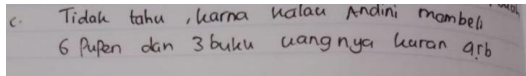 c. Tidak tahu , karna kalau Andini mambeli
6 Pupen dan 3 buku uangnya kuran